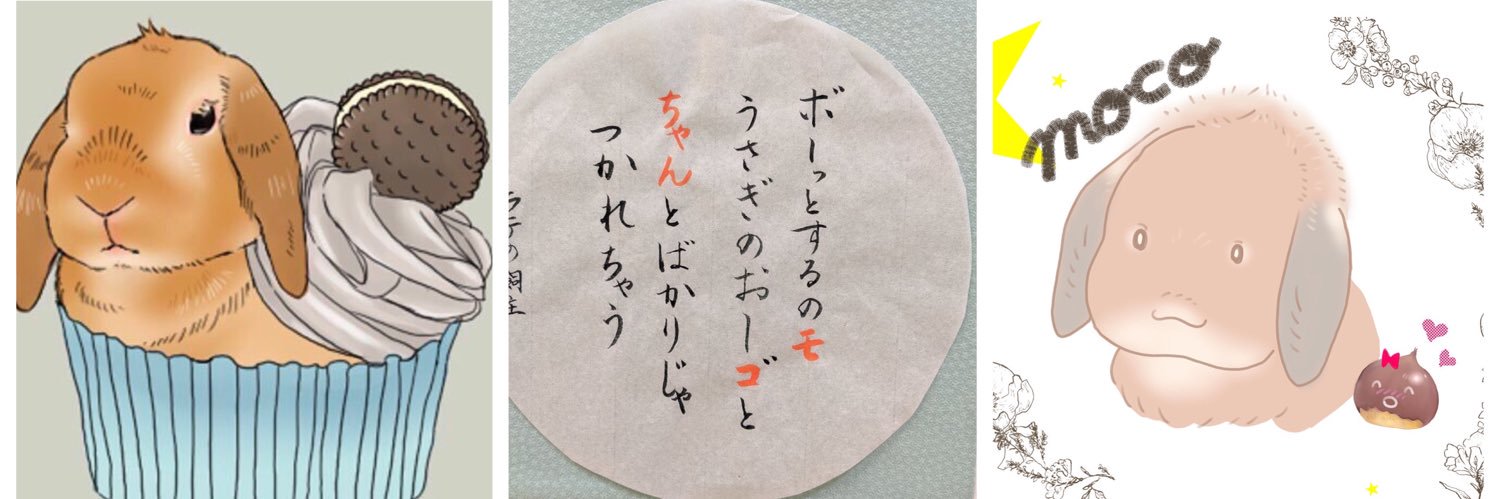 ボーっとするのモ
うさぎのおーゴと
ちゃんとばかりじゃ
つかれちゃう
moco